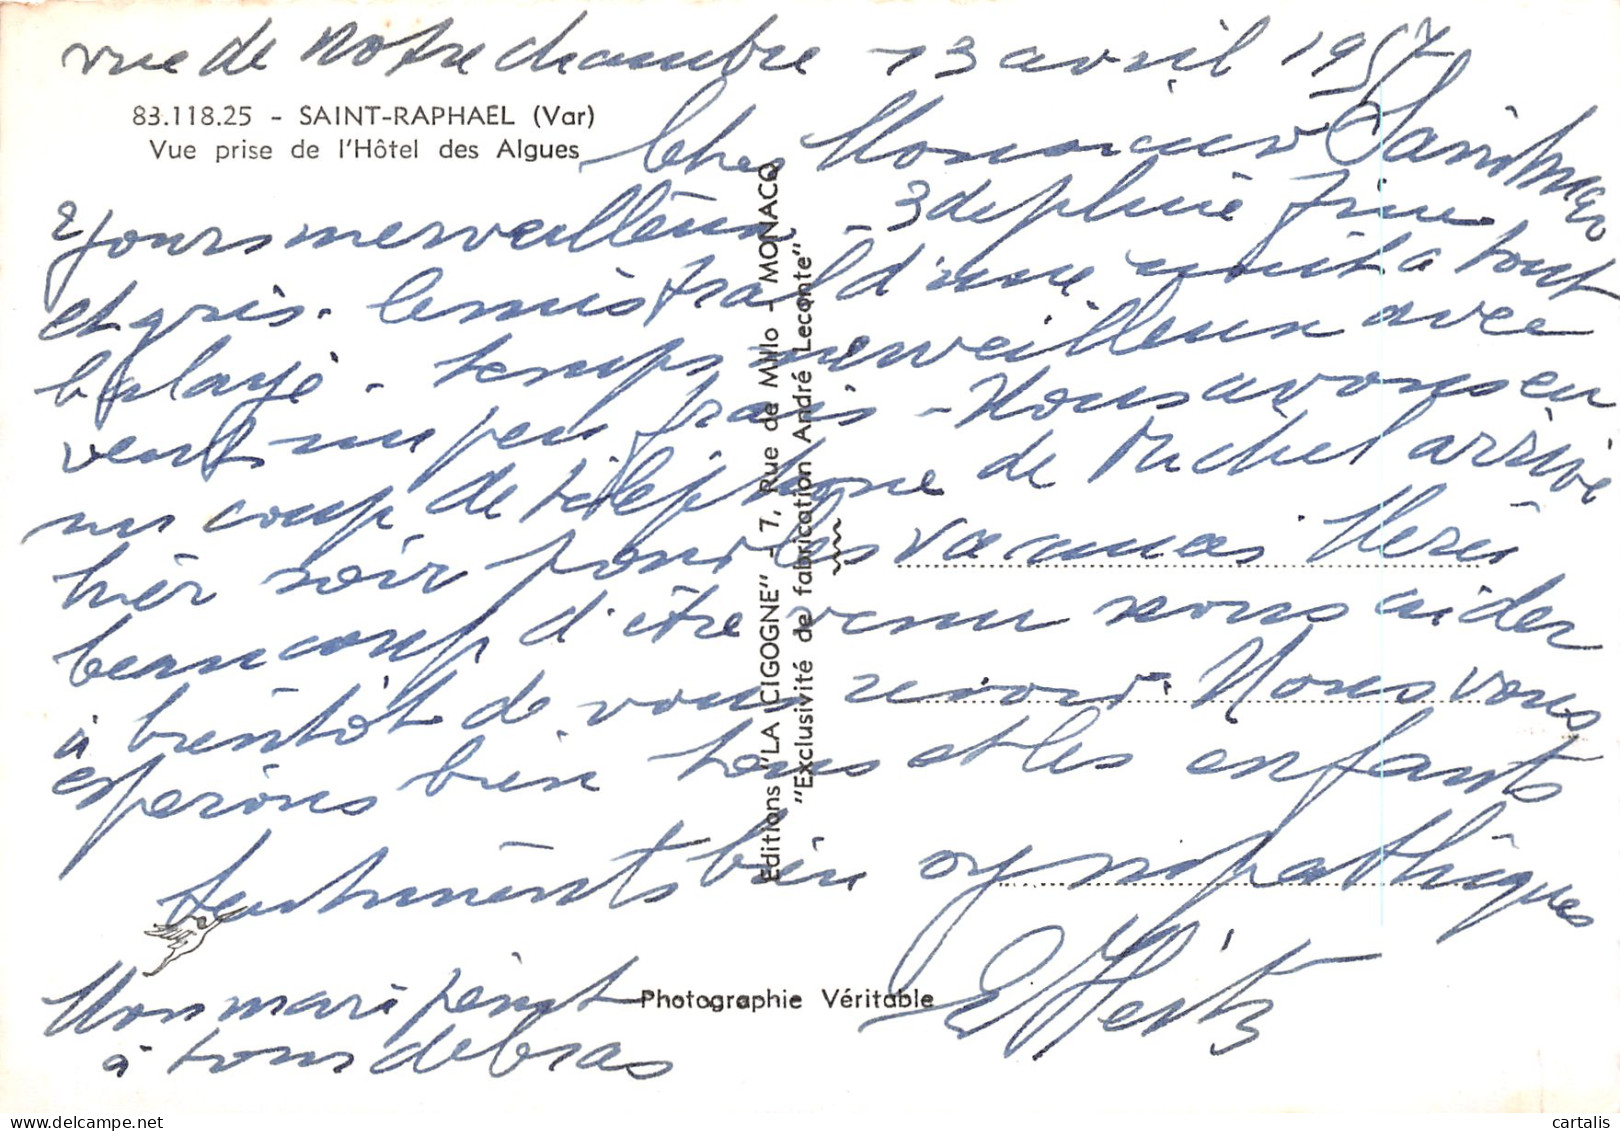 vue de notre chambre 13 avril 1957
83.118.25 - SAINT-RAPHAEL (Var)
Vue prise de l'Hôtel des Algues
Cher Monsieur
2 jours merveilleux - 3 de pluie fine
et gris. le mistral d'une nuit a tout
balayé - temps merveilleux avec
vent un peu frais - Nous avons eu
un coup de téléphone de Michel arrivé
hier soir pour les vacances. Merci
beaucoup d'être venu nous aider
à bientôt de vous revoir. Nous vous
espérons bien tous et les enfants
sentiments bien sympathiques
Mon mari peint
à tour de bras
Editions "LA CIGOGNE" - 7, Rue de Millo - MONACO
"Exclusivité de fabrication André Leconte"
Photographie Véritable
cartalis.com